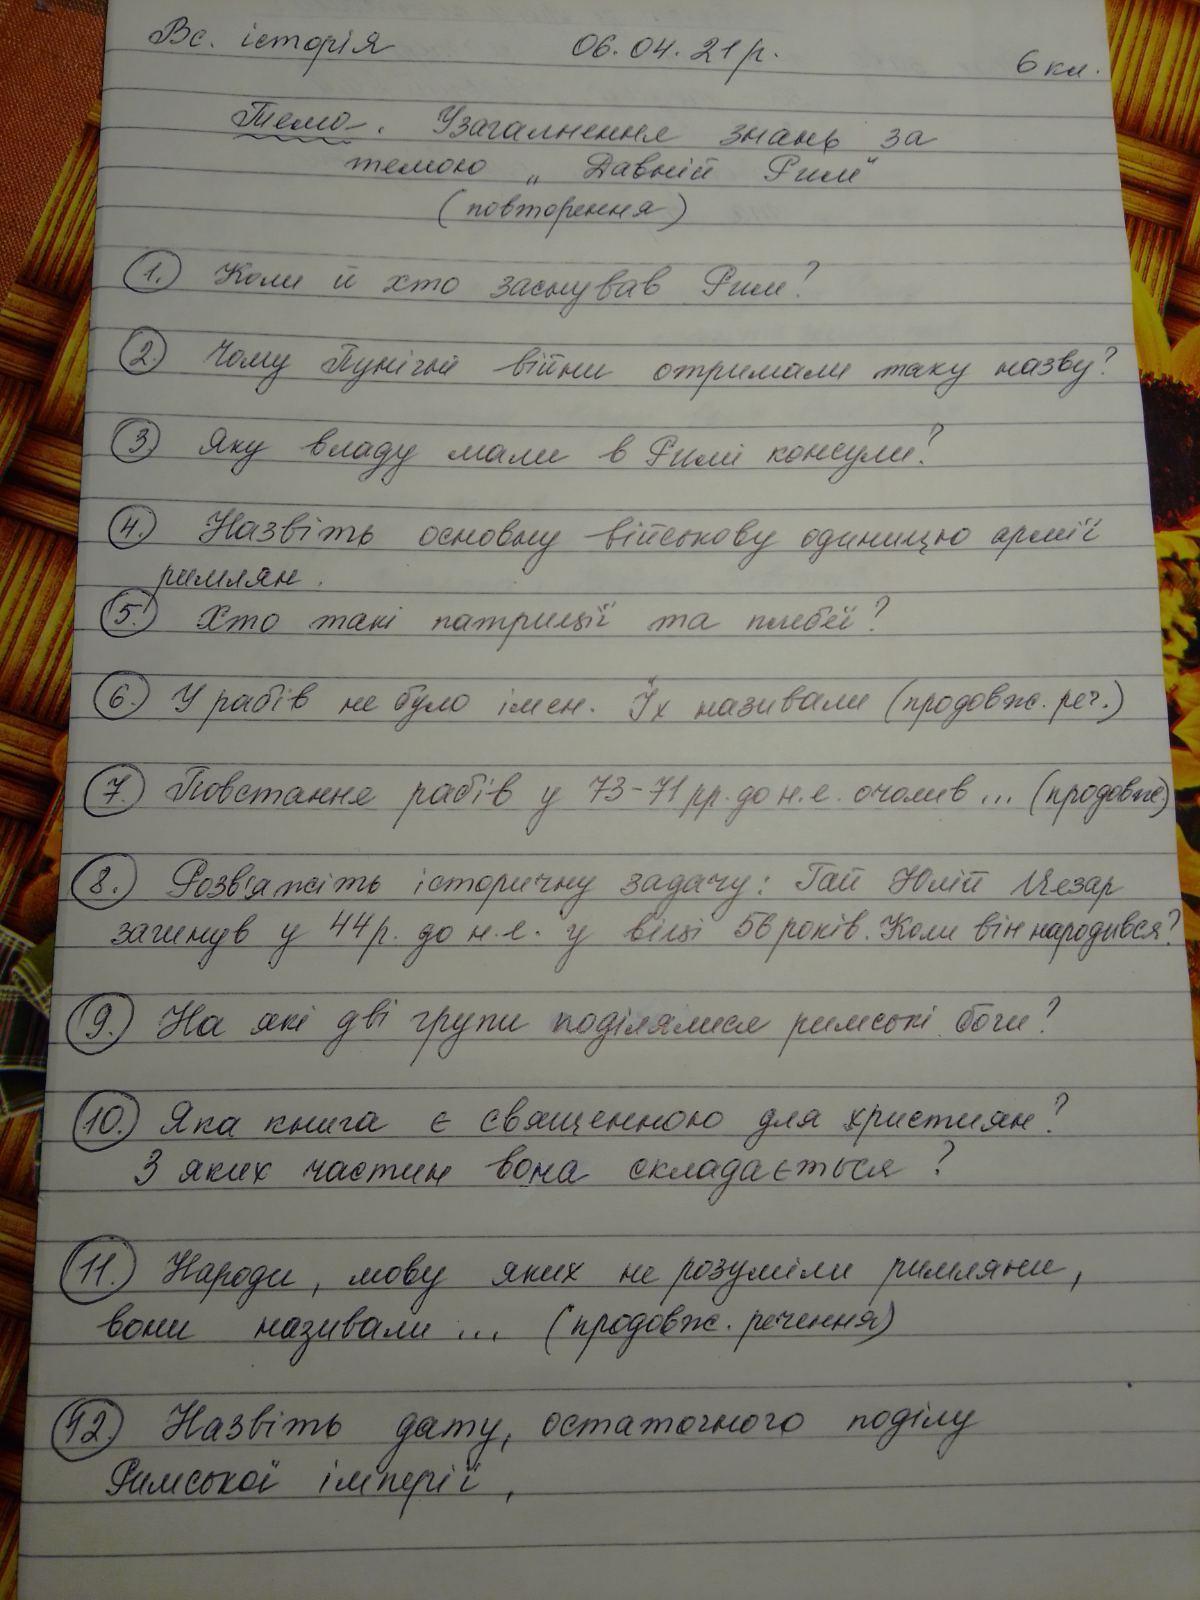 Вс. історія 06.04.21р. 6 кл.
Тема. Узагальнення знань за
темою „Давній Рим"
(повторення)
1. Коли й хто заснував Рим?
2. Чому Пунічні війни отримали таку назву?
3. Яку владу мали в Римі консули?
4. Назвіть основну військову одиницю армії
римлян.
5. Хто такі патриції та плебеї?
6. У рабів не було імен. Їх називали (продовж. реч.)
7. Повстання рабів у 73-71 рр. до н.е. очолив ... (продовж.)
8. Розв'яжіть історичну задачу: Гай Юлій Цезар
загинув у 44 р. до н.е. у віці 56 років. Коли він народився?
9. На які дві групи поділялися римські боги?
10. Яка книга є священною для християн?
З яких частин вона складається?
11. Народи, мову яких не розуміли римляни,
вони називали ... (продовж. речення)
12. Назвіть дату, остаточного поділу
Римської імперії,